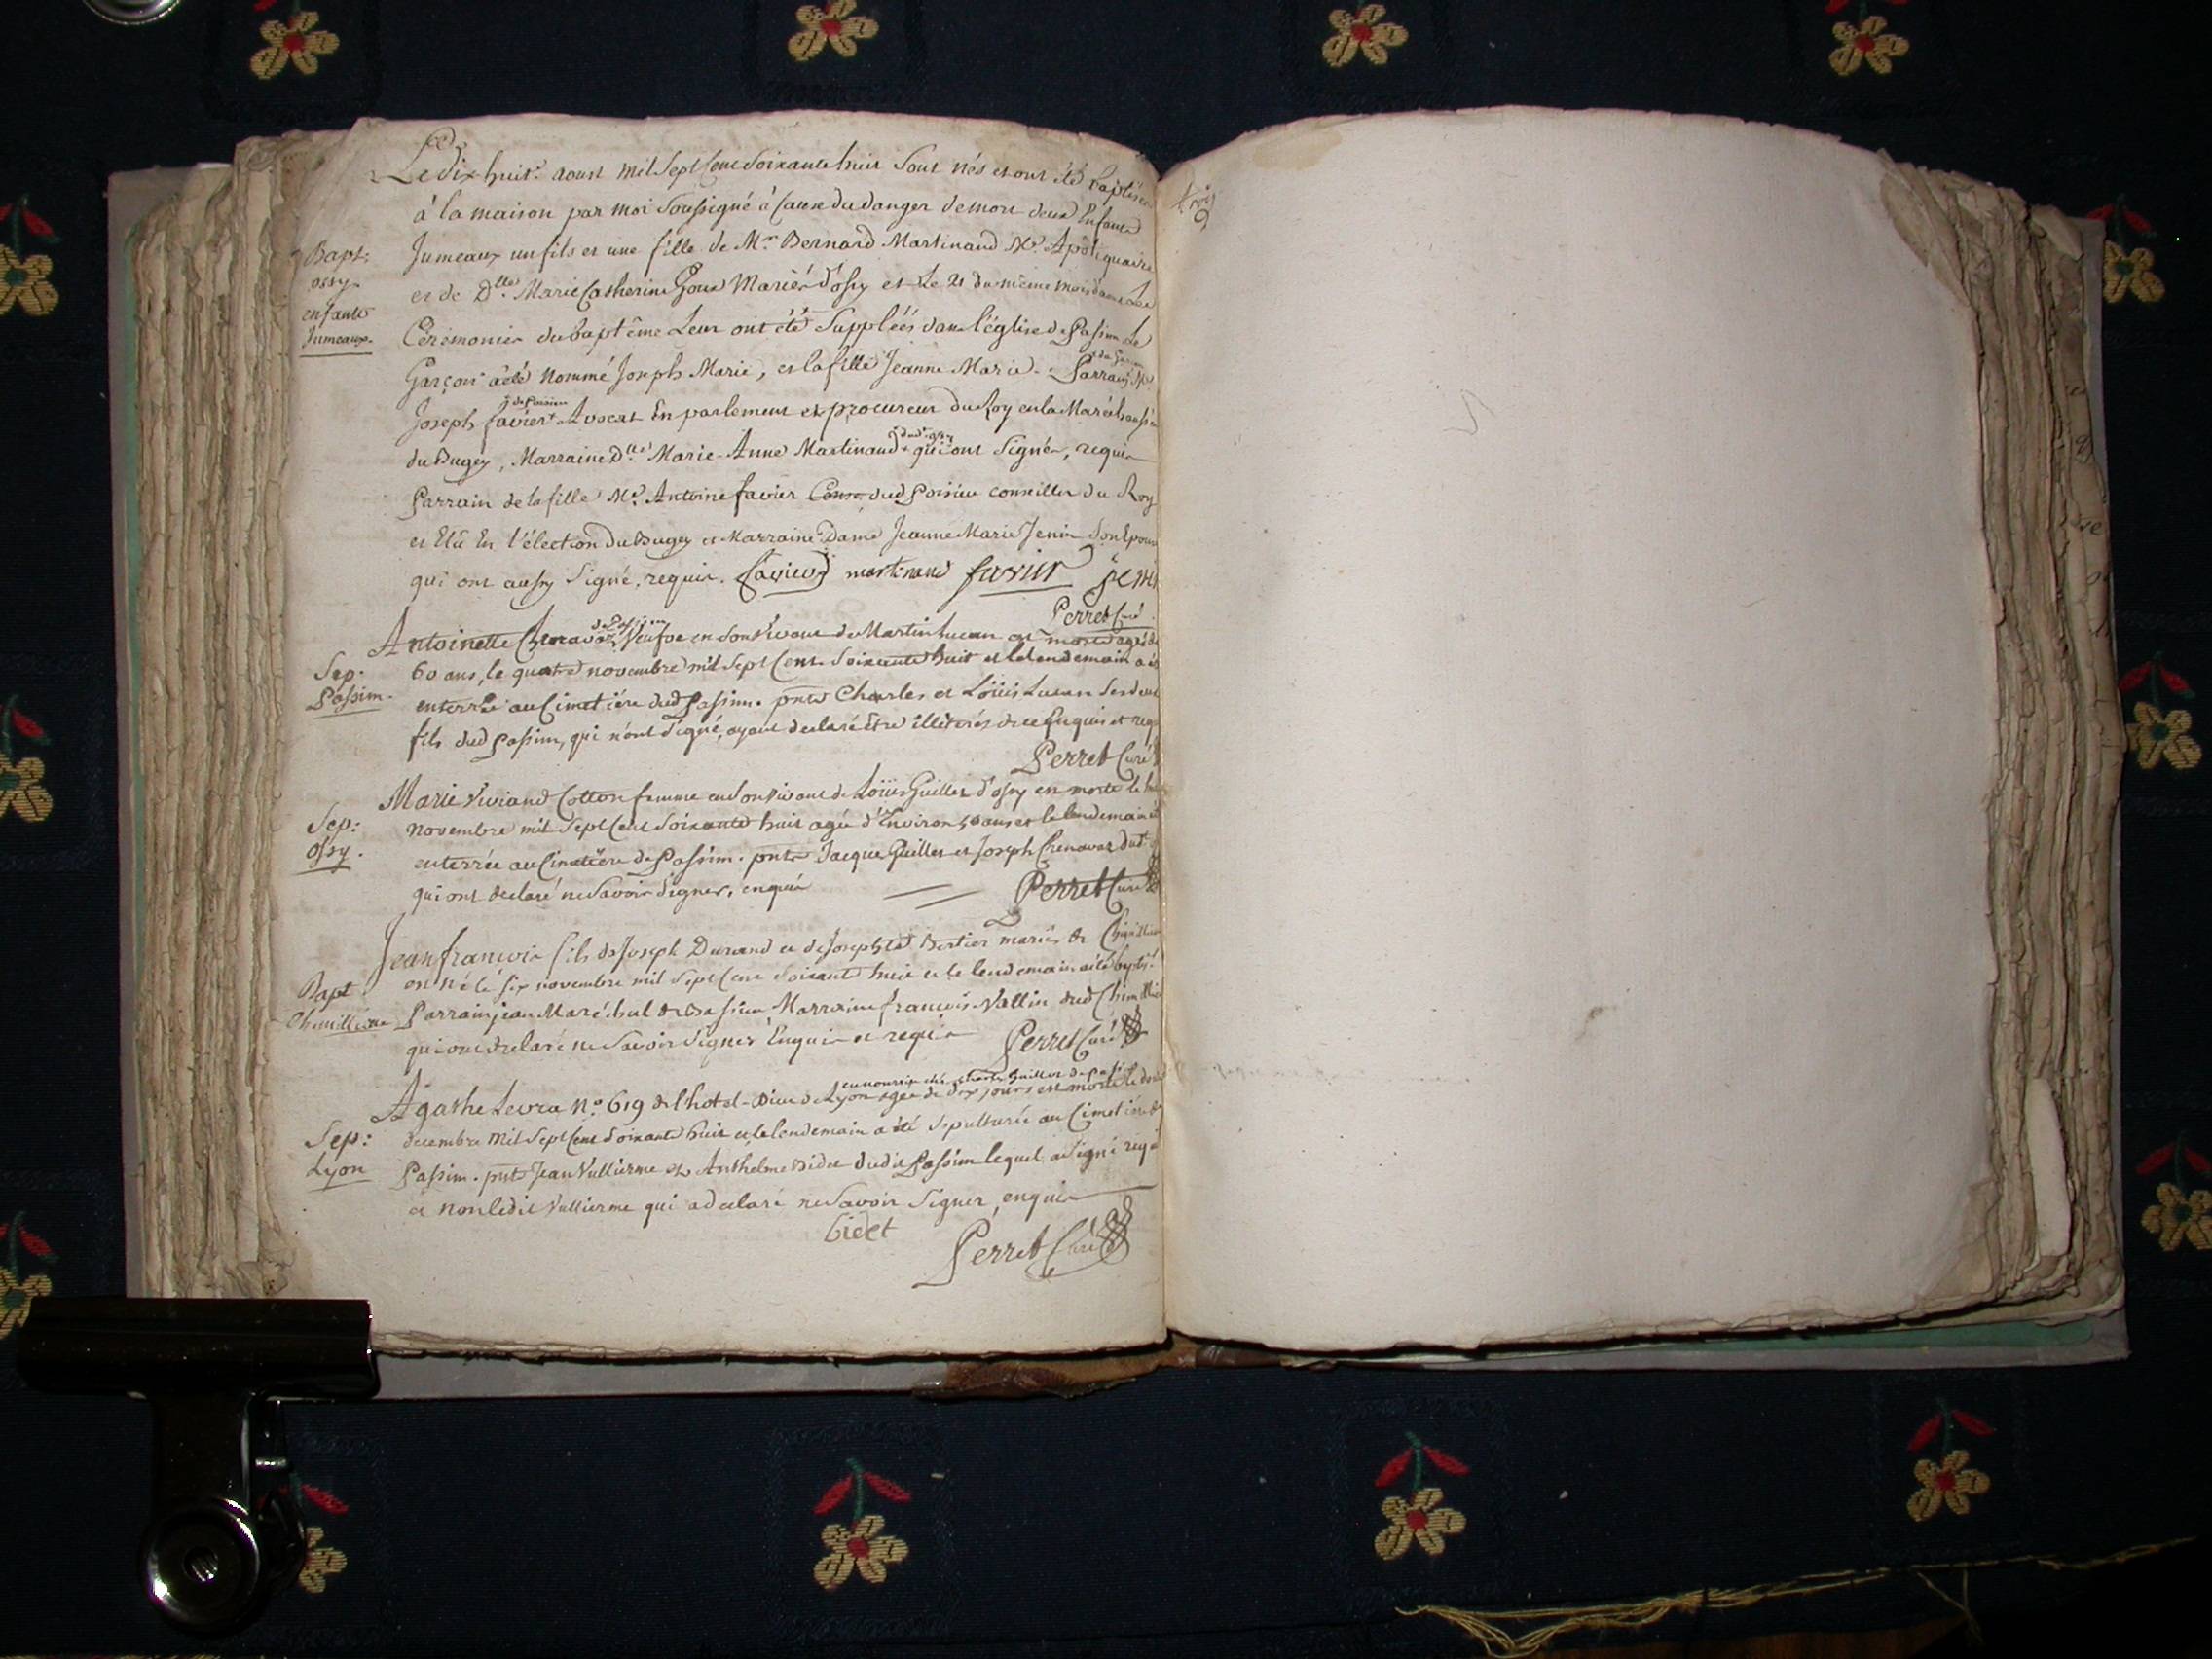 Le dix huit aoust mil Sept Cent Soixante huit Sont nés et ont été baptisés
à la maison par moi Soussigné à Cause du danger de mort deux Enfants
Bapt:
ossy.
enfants
Jumeaux.
Jumeaux un fils et une fille de Mr. Bernard Martinand Me. Apotiquaire
et de Dlle. Marie Catherine Goux Mariés d'ossy et Le 21 du même mois
Cérémonies du baptême Leur ont été Suppléés dans l'église de Passin Le
Garçon a été nommé Joseph Marie, et la fille Jeanne Marie. Parrain
Joseph favier Avocat En parlement et procureur du Roy en la Maréchaussée
du Bugey, Marraine Dlle. Marie-Anne Martinand qui ont Signé, requis
Parrain de la fille Me. Antoine favier dud Poisieu conseiller du Roy
et Elû En l'élection du Bugey et Marraine Dame Jeanne Marie Jenin Son Epouse
qui ont aussy Signé, requis. favier martinand favier jenin
Perret Curé
Antoinette Chenavaz Veufve en Son Vivant de Martin Lucan est morte agée de
Sep:
Passim.
60 ans, le quatre novembre mil Sept Cent Soixante huit et le lendemain a été
enterrée au Cimetière dud Passim. pnts Charles et Loüis Lucan Ses deux
fils dud Passim, qui n'ont Signé, ayant declaré Etre illiterés de ce Enquis et requis
Perret Curé
Marie Viviand Cotton femme en Son Vivant de Loüis Guillet d'ossy est morte le
Sep:
ossy.
novembre mil Sept Cent Soixante huit agée d'Environ 50 ans et le lendemain
enterrée au Cimetière de Passim. pnts Jacque Guillet et Joseph Chenavaz
qui ont declaré ne Savoir Signer, enquis
Perret Curé
Jean françois fils de Joseph Durand et de Josephte Bertier mariés de
Bapt:
Chemillieu
est né le six novembre mil Sept Cent Soixante huit et le lendemain a été baptisé
Parrain jean Maréchal de Marraine françoise Vallin dud
qui ont declaré ne Savoir Signer Enquis et requis Perret Curé
en nourrice chés Guillot de
Agathe Levra No. 619 de l'hotel-Dieu de Lyon agée de dix jours est morte le
Sep:
Lyon
decembre mil Sept Cent Soixante huit et le lendemain a été Sepulturée au Cimetière de
Passim. pnts Jean Vullierme et Anthelme Bidet dudit Passim lequel a Signé requis
et non ledit Vullierme qui a declaré ne Savoir Signer, enquis
bidet
Perret Curé